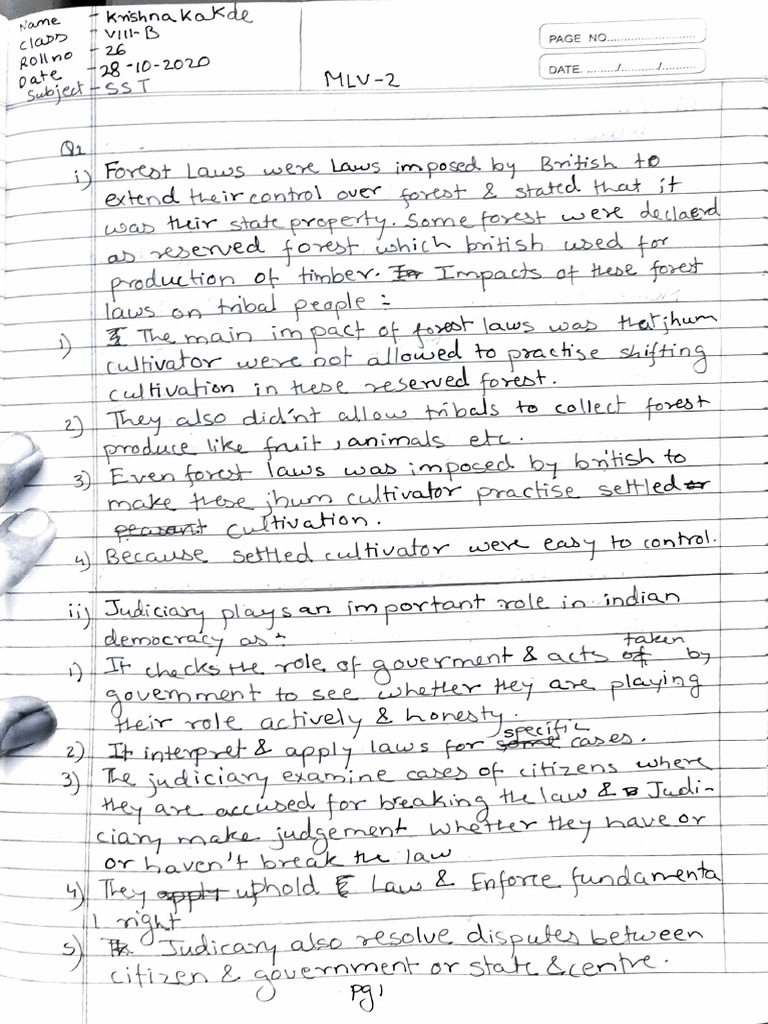 Name - Krishna Kakde
Class - VIII-B
Rollno - 26
Date - 28-10-2020
Subject - SST
MLV-2
PAGE NO.
DATE. / /
Q1
i) Forest Laws were Laws imposed by British to
extend their control over forest & stated that it
was their state property. Some forest were declaerd
as reserved forest which british used for
production of timber. Impacts of these forest
laws on tribal people :
1) The main impact of forest laws was that jhum
cultivator were not allowed to practise shifting
cultivation in these reserved forest.
2) They also did'nt allow tribals to collect forest
produce like fruit, animals etc.
3) Even forest laws was imposed by british to
make these jhum cultivator practise settled or
peasant cultivation.
4) Because settled cultivator were easy to control.
ii) Judiciary plays an important role in indian
democracy as :-
1) It checks the role of goverment & acts of taken by
government to see whether they are playing
their role actively & honesty.
2) It interpret & apply laws for some specific cases.
3) The judiciary examine cases of citizens where
they are accused for breaking the law & Judi-
ciary make judgement whether they have or
or haven't break the law
4) They apply uphold Law & Enforce fundamenta
l right
5) Judicary also resolve disputes between
citizen & government or state & centre.
Pg 1